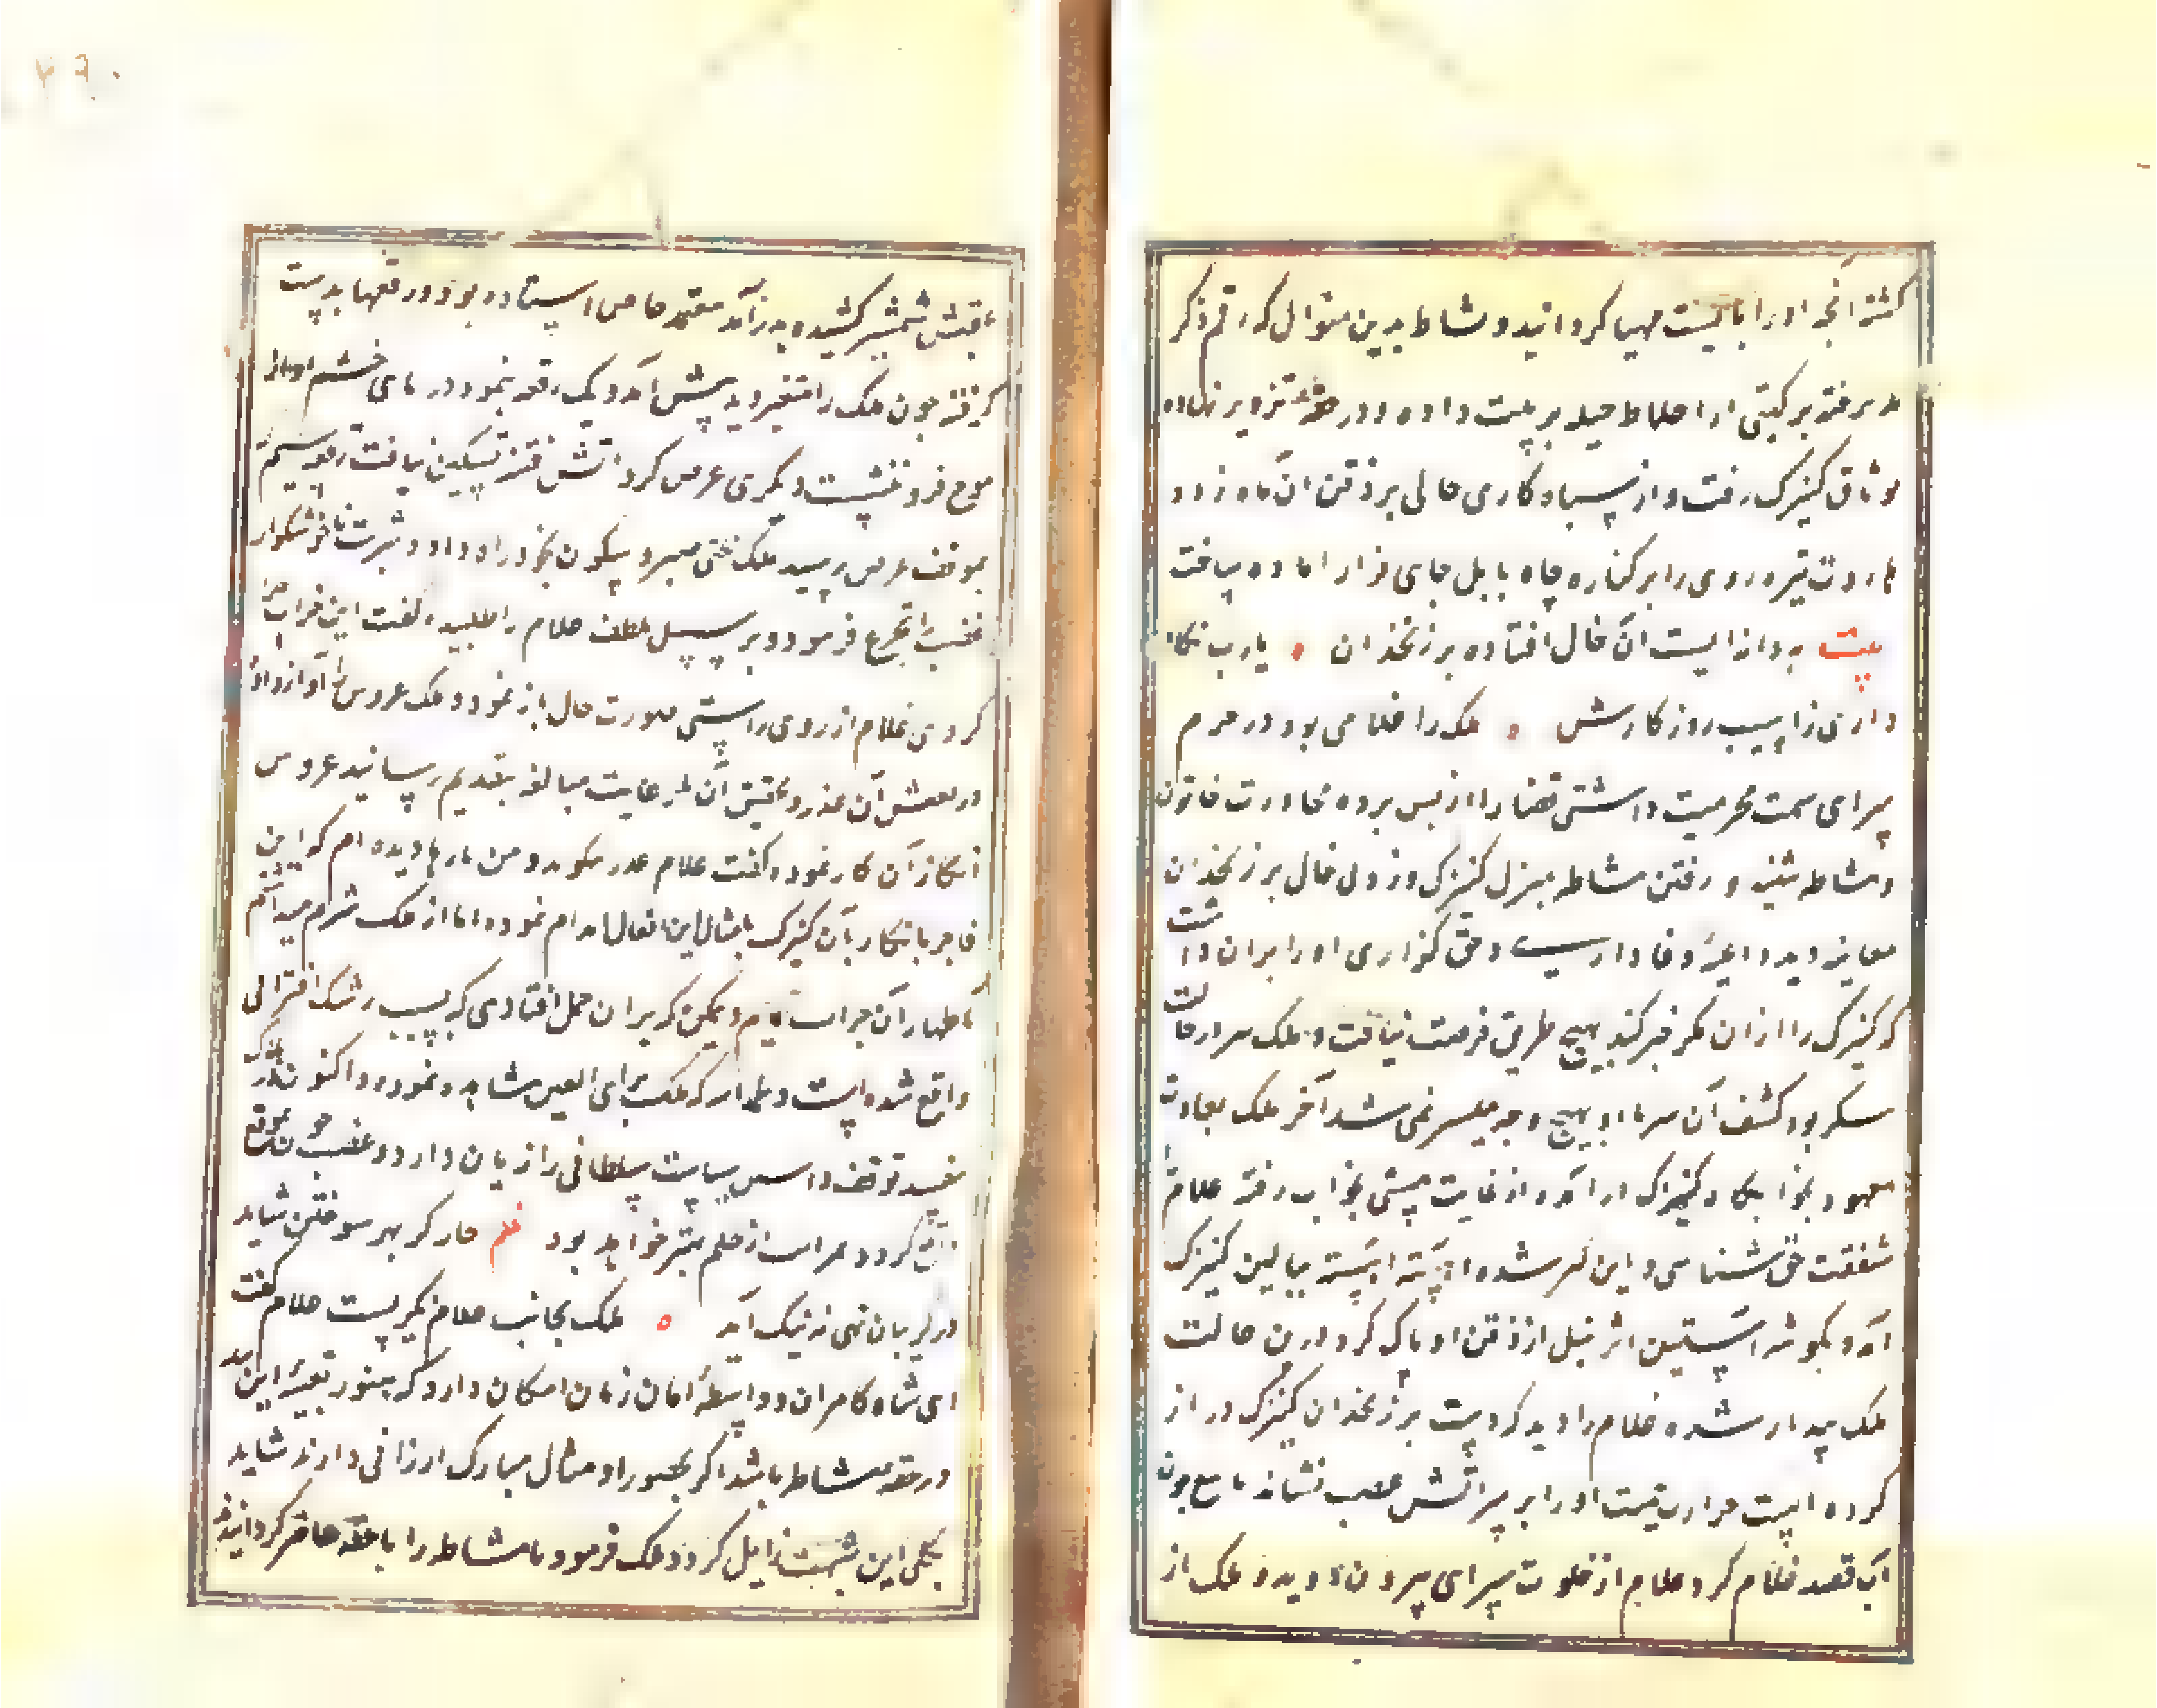 کشته آنچه او را بایست مهیا گردانید و مشاطه بدین منوال که رقم ذکر
پذیرفته ترکیبی از اخلاط حیله ترتیب داده و در حقهٔ تزویر نهاده
بوثاق کنیزک رفت و از سیاه کاری خالی بر ذقن آن ماه زد و
هاروت تیره روی را بر کناره چاه بابل جای قرار آماده ساخت
بیت چه دانه ایست آن خال افتاده بر زنخدان یارب نگاه
داری ز آسیب روزگارش ملک را غلامی بود در حرم
سرای سمت محرمیت داشتی قضا را از پس پرده محاورت خاتون
و مشاطه شنید و رفتن مشاطه بمنزل کنیزک و زدن خال بر زنخدان
معاینه دید داعیهٔ وفاداری و حق گزاری او را بران داشت
که کنیزک را از آن مکر خبر کند بهیچ طریق فرصت نیافت و ملک
سکر بود کشف آن سر با او بهیچ وجه میسر نمی شد آخر ملک بعادت
معهود بخوابگاه کنیزک درآمد و از غایت مستی بخواب رفت غلام
شفقت حق شناسی آهسته آهسته ببالین کنیزک
آمد و بگوشه آستین اثر نیل از ذقن او پاک کرد درین حالت
ملک بیدار شده غلام را دید که دست بر زنخدان کنیزک دراز
کرده است حرارت حمیت او را بر سر آتش غضب نشاند با تیغ چون
آب قصد غلام کرد غلام از خلوت سرای بیرون دوید و ملک از
عقبش شمشیر کشیده بدر آمد معتمد خاص ایستاده بود و رقعها بدست
گرفته چون ملک را متغیر دید پیش آمد و یک رقعه نمود دریای خشم او از
موج فرو ننشست دیگری عرض کرد آتش فتنه تسکین نیافت رقعه سیم
بموقف عرض رسید ملک صبر و سکون بخود راه داد و شربت ناخوشگوار
غضب را تجرع فرمود و بر سبیل لطف غلام را طلبید و گفت این چرا
کردی غلام از روی راستی صورت حال باز نمود و ملک عروس را آواز داد
در تفتیش آن غدر و تحقیق آن رعایت مبالغه بتقدیم رسانید عروس
انکار آن کار نموده گفت غلام غدر میگوید و من بارها دیده ام که این
فاجر نابکار با آن کنیزک بامثال این افعال اقدام نموده اما از ملک شرم میداشتم
باظهار آن جرات نمودم و ممکن که بران حمل افتادی که بسبب رشک افترائی
واقع شده است که ملک برای العین مشاهده نموده و اکنون
مفسد توقف اساس سیاست سلطانی را زیان دارد و غضب چون بموقع
واقع گردد از حلم بهتر خواهد بود نظم خار کز بهر سوختن شاید
در گریبان نهی نه نیک آید ملک بجانب غلام نگریست غلام گفت
ای شاه کامران و واسطهٔ امان زمان امکان دارد که هنوز بقیهٔ این نیل
در حقه مشاطه باشد اگر بحضور او مثال مبارک ارزانی دارند شاید
بکلی این شبهت زایل گردد ملک فرمود تا مشاطه را با حقه حاضر گردانیدند